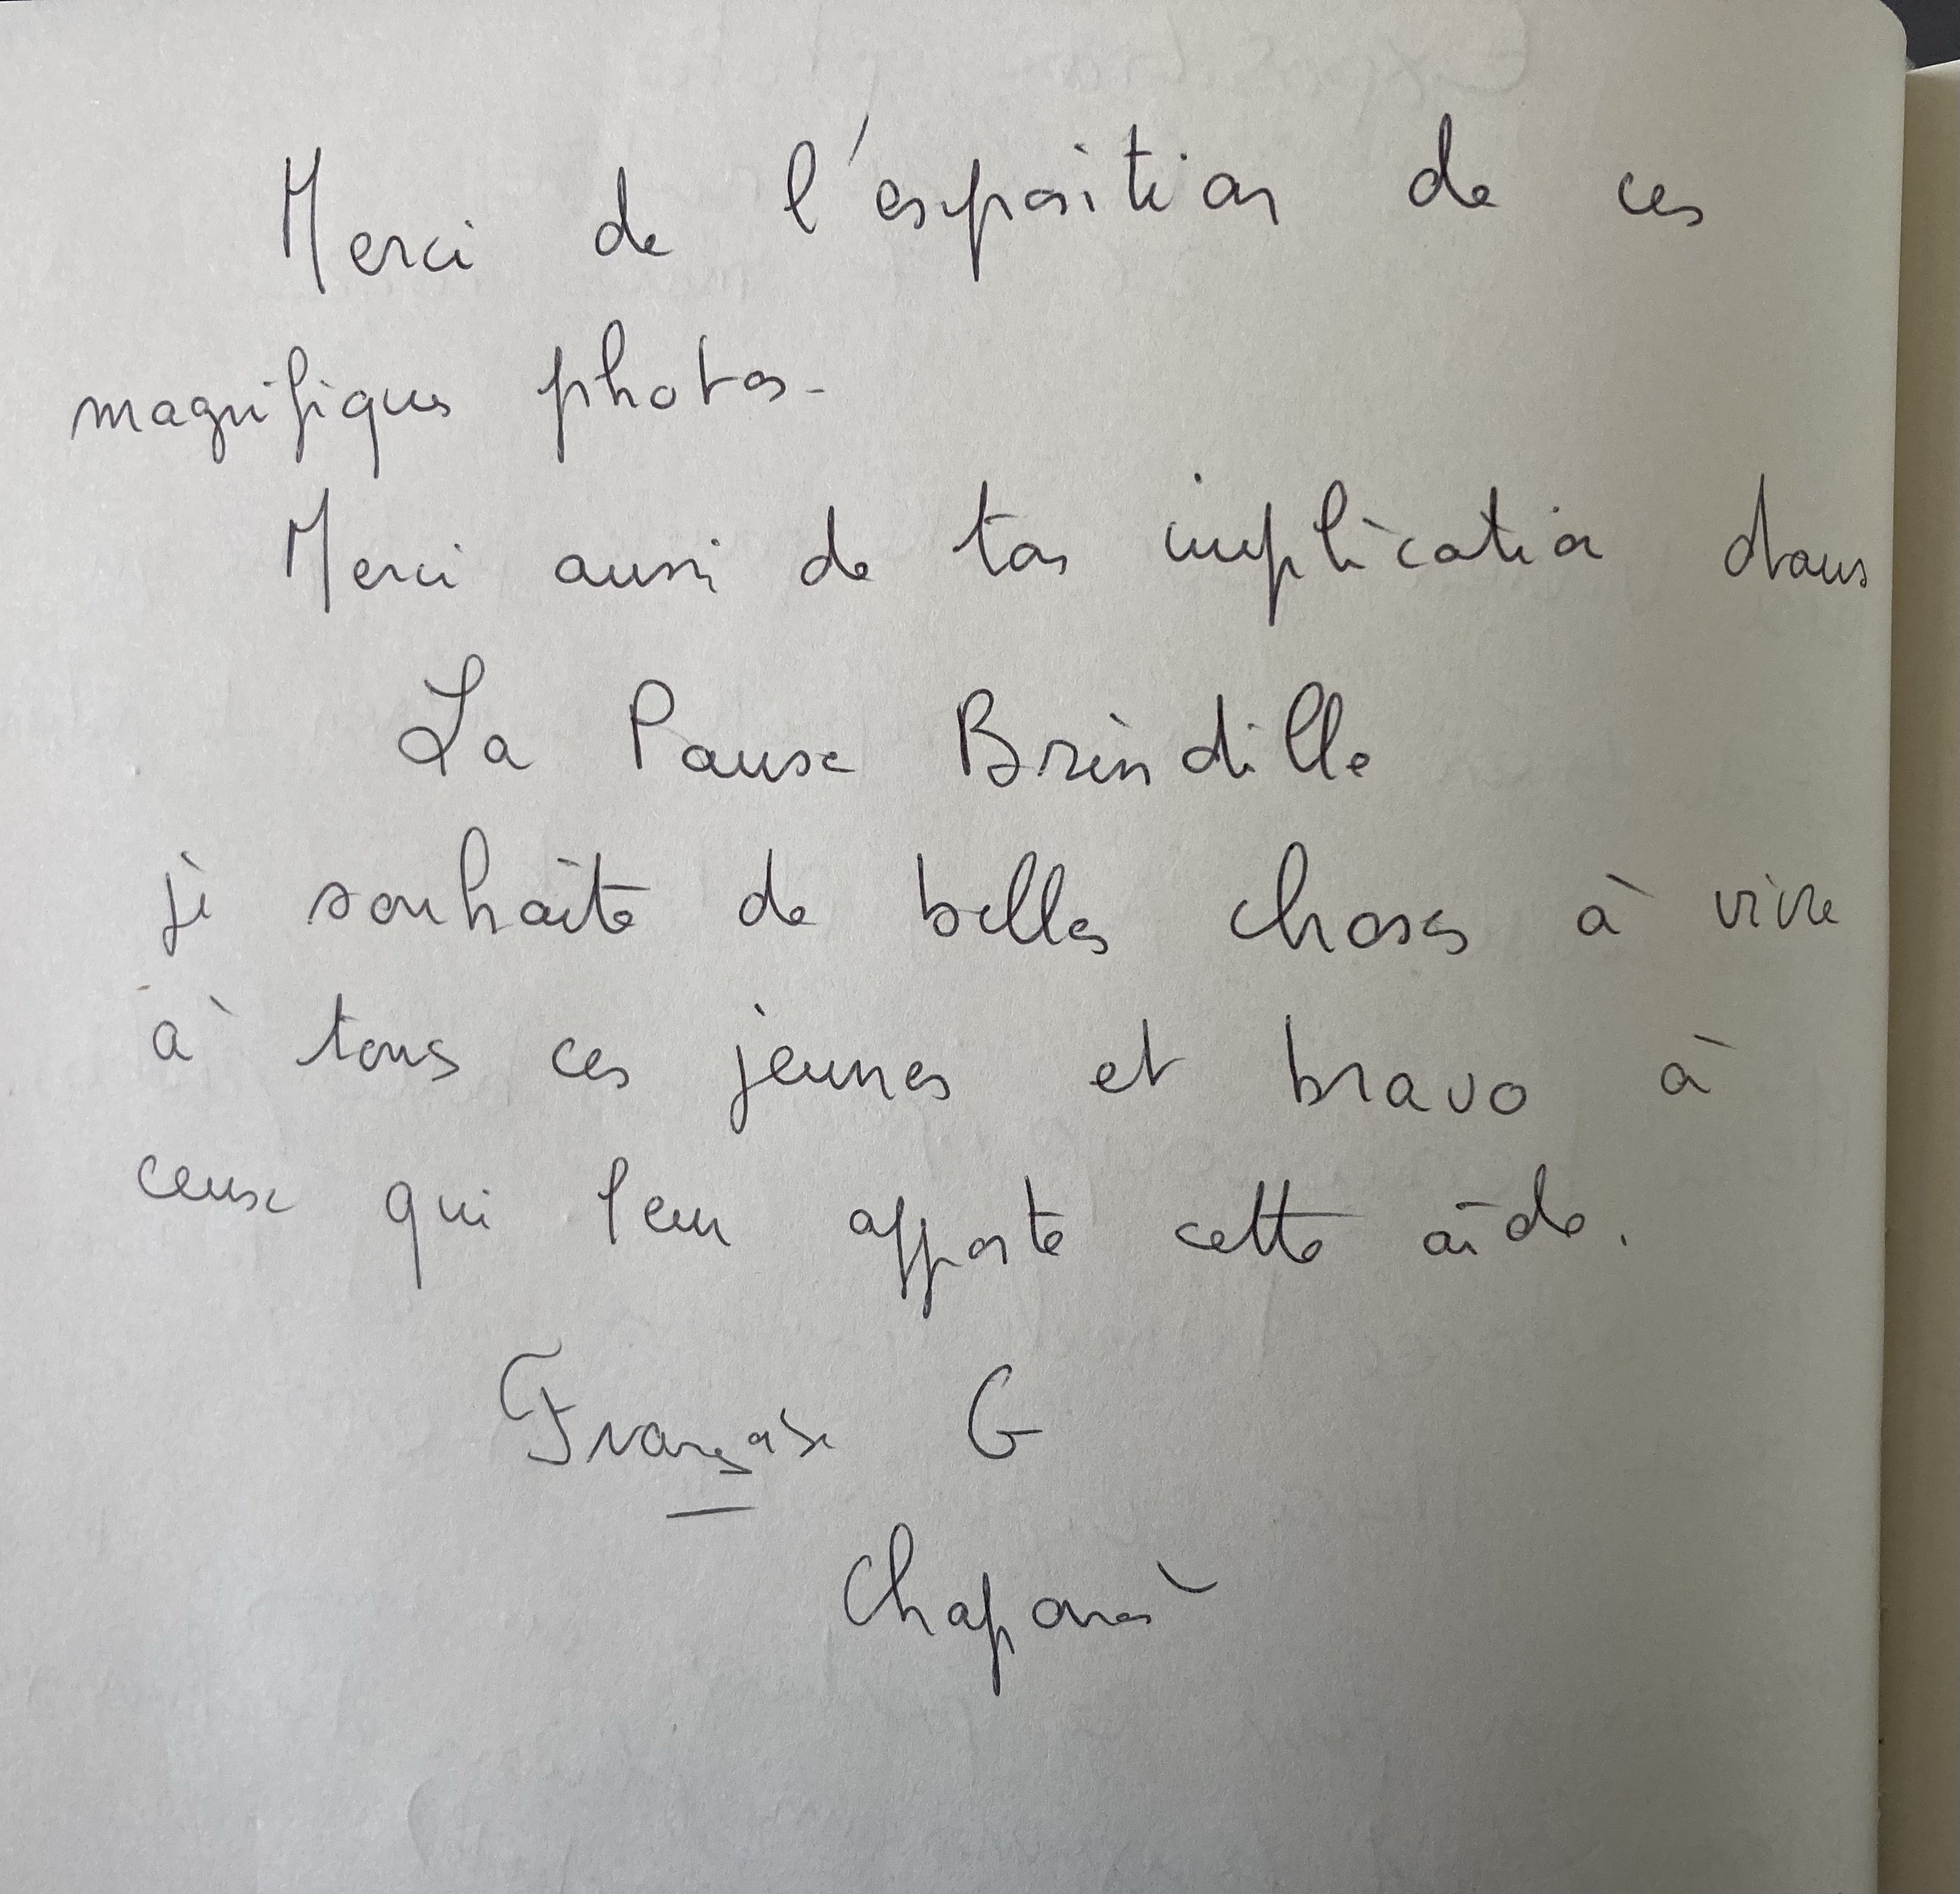 Merci de l'exposition de ces
magnifiques photos.
Merci aussi de ton implication dans
La Pause Brindille
je souhaite de belles choses à vivre
à tous ces jeunes et bravo à
ceux qui leur apporte cette aide.
Françoise G
Chaponost